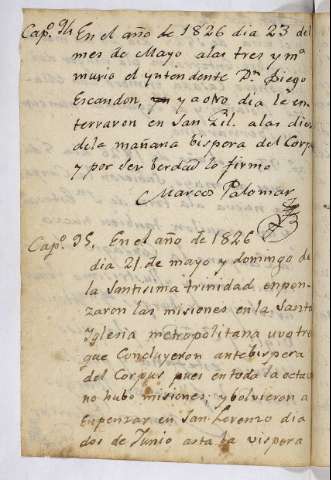 Capo. 94 En el año de 1826 dia 23 del
mes de Mayo alas tres y ma
murio el yntendente Dn Diego
Escandon, y a otro dia le en
terraron en San Fil. alas dies
dela mañana bispera del Corpus
y por ser berdad lo firmo
Marcos Palomar
Capo. 95. En el año de 1826
dia 21 de mayo y domingo de
la Santisima trinidad enpen
zaron las misiones en la Santa
Yglesia metropolitana uvo tres
que Concluyeron antebispera
del Corpus pues en toda la octava
no hubo misiones, y bolvieron a
Enpenzar en San Lorenzo dia
dos de Junio asta la vispera